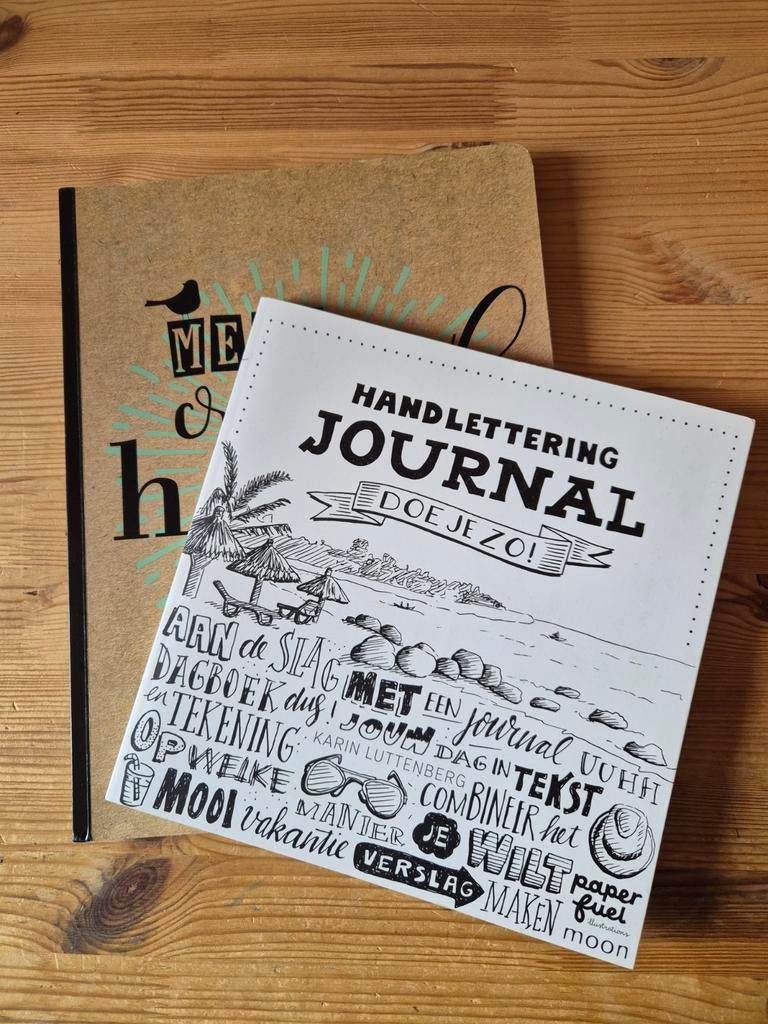 ME
&
h
HANDLETTERING
JOURNAL
DOE JE ZO!
AAN de SLAG MET EEN journal UUHH
DAGBOEK dus! JOUW DAG IN TEKST
en TEKENING
KARIN LUTTENBERG
OP WELKE MANIER COMBINEER het
MOOI vakantie VERSLAG MAKEN
JE WILT
paper
fuel
illustrations
moon